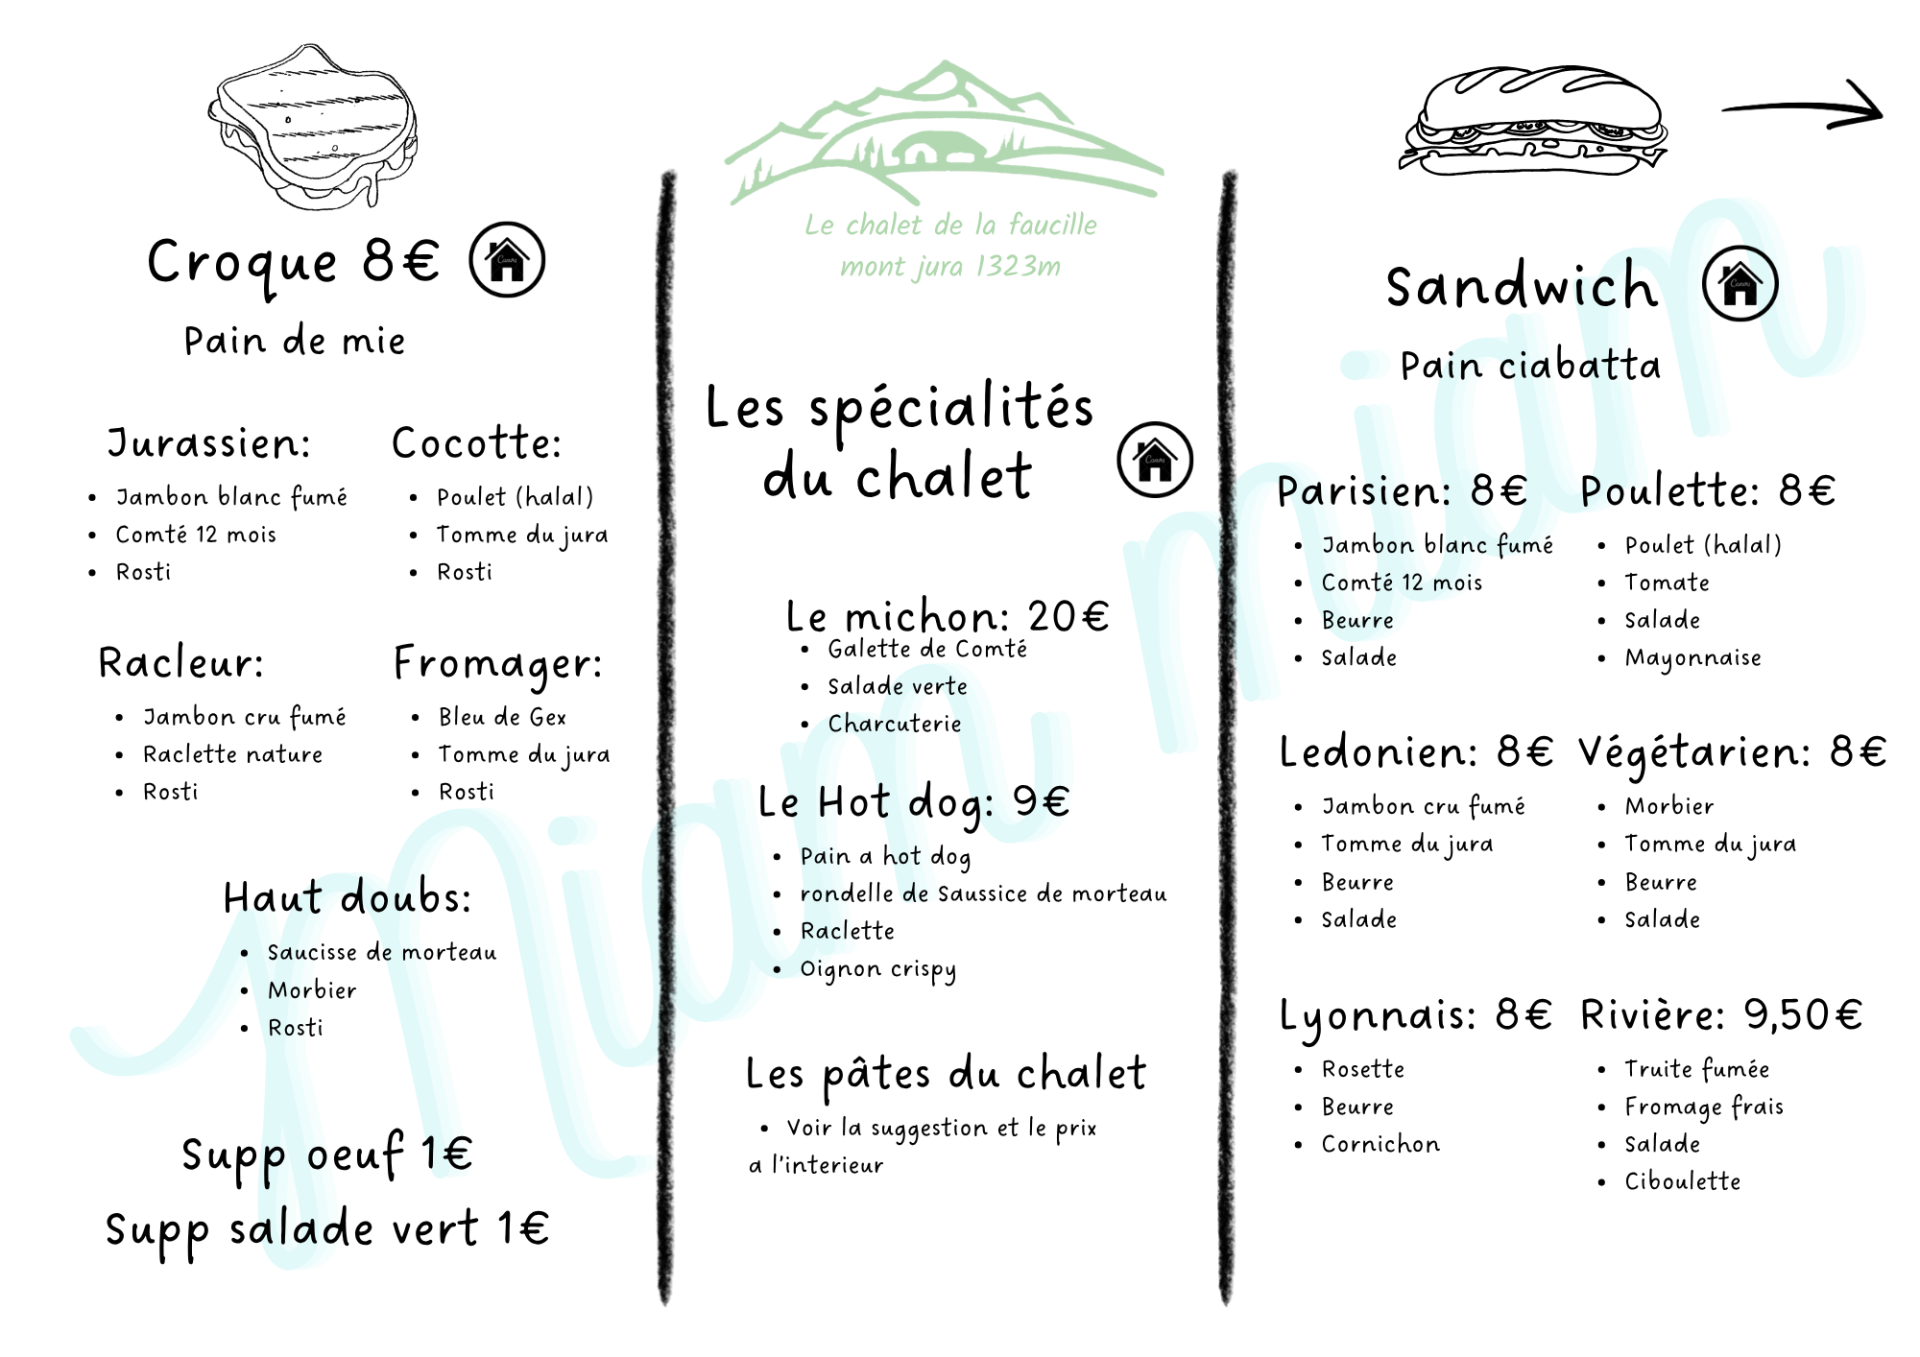 Croque 8€
Pain de mie
Jurassien:
Jambon blanc fumé
Comté 12 mois
Rosti
Cocotte:
Poulet (halal)
Tomme du jura
Rosti
Racleur:
Jambon cru fumé
Raclette nature
Rosti
Fromager:
Bleu de Gex
Tomme du jura
Rosti
Haut doubs:
Saucisse de morteau
Morbier
Rosti
Supp oeuf 1€
Supp salade vert 1€
Le chalet de la faucille
mont jura 1323m
Les spécialités
du chalet
Le michon: 20€
Galette de Comté
Salade verte
Charcuterie
Le Hot dog: 9€
Pain a hot dog
rondelle de Saussice de morteau
Raclette
Oignon crispy
Les pâtes du chalet
Voir la suggestion et le prix
a l'interieur
Sandwich
Pain ciabatta
Parisien: 8€
Jambon blanc fumé
Comté 12 mois
Beurre
Salade
Poulette: 8€
Poulet (halal)
Tomate
Salade
Mayonnaise
Ledonien: 8€
Jambon cru fumé
Tomme du jura
Beurre
Salade
Végétarien: 8€
Morbier
Tomme du jura
Beurre
Salade
Lyonnais: 8€
Rosette
Beurre
Cornichon
Rivière: 9,50€
Truite fumée
Fromage frais
Salade
Ciboulette
Miam miam